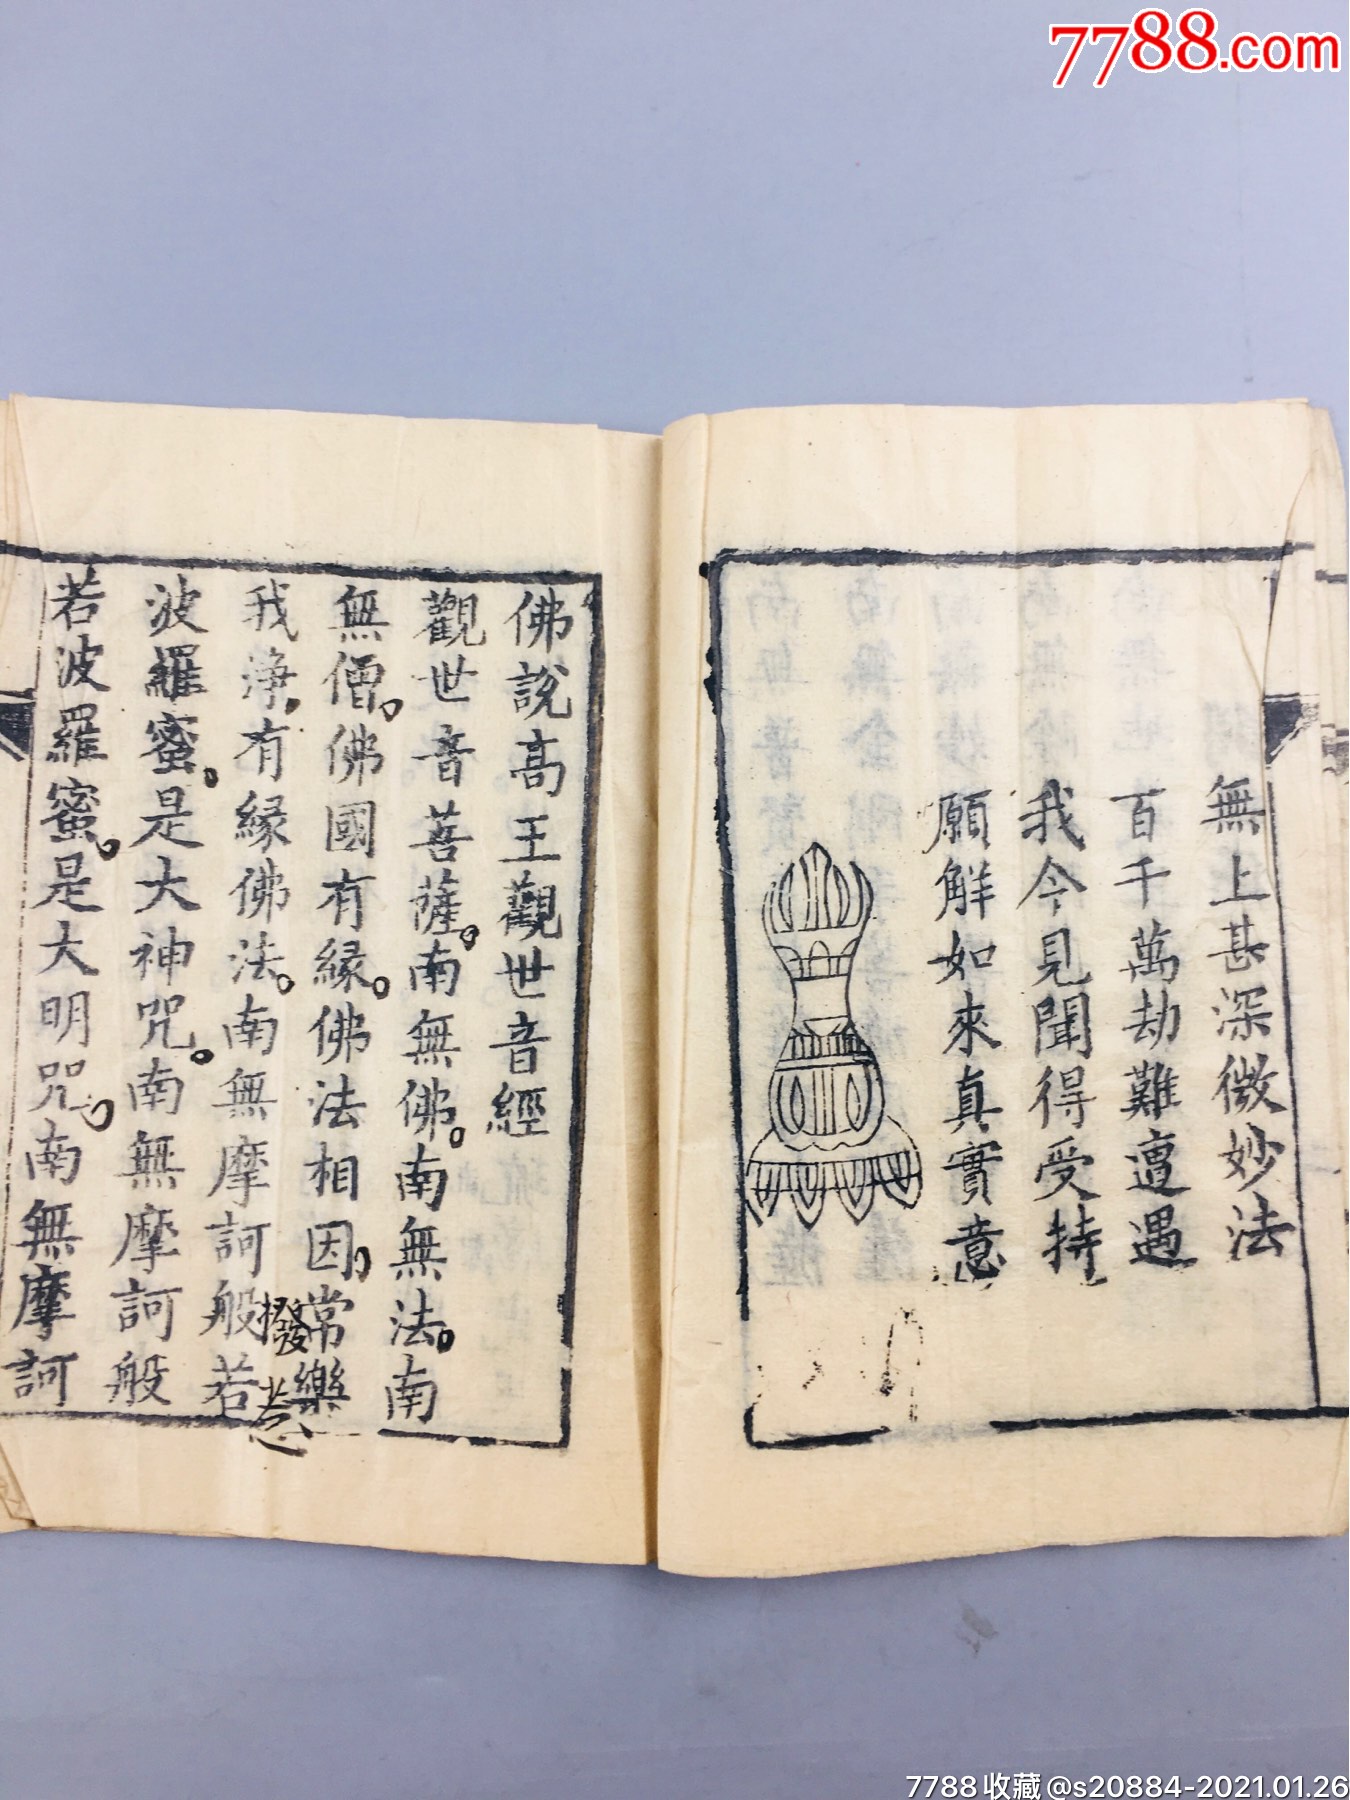 7788.com
無上甚深微妙法
百千萬劫難遭遇
我今見聞得受持
願解如來真實意
佛說高王觀世音經
觀世音菩薩。南無佛。南無法。南
無僧。佛國有緣。佛法相因。常樂
我淨。有緣佛法。南無摩訶般若
撥惹
波羅蜜。是大神咒。南無摩訶般
若波羅蜜。是大明咒。南無摩訶
7788收藏@s20884-2021.01.26